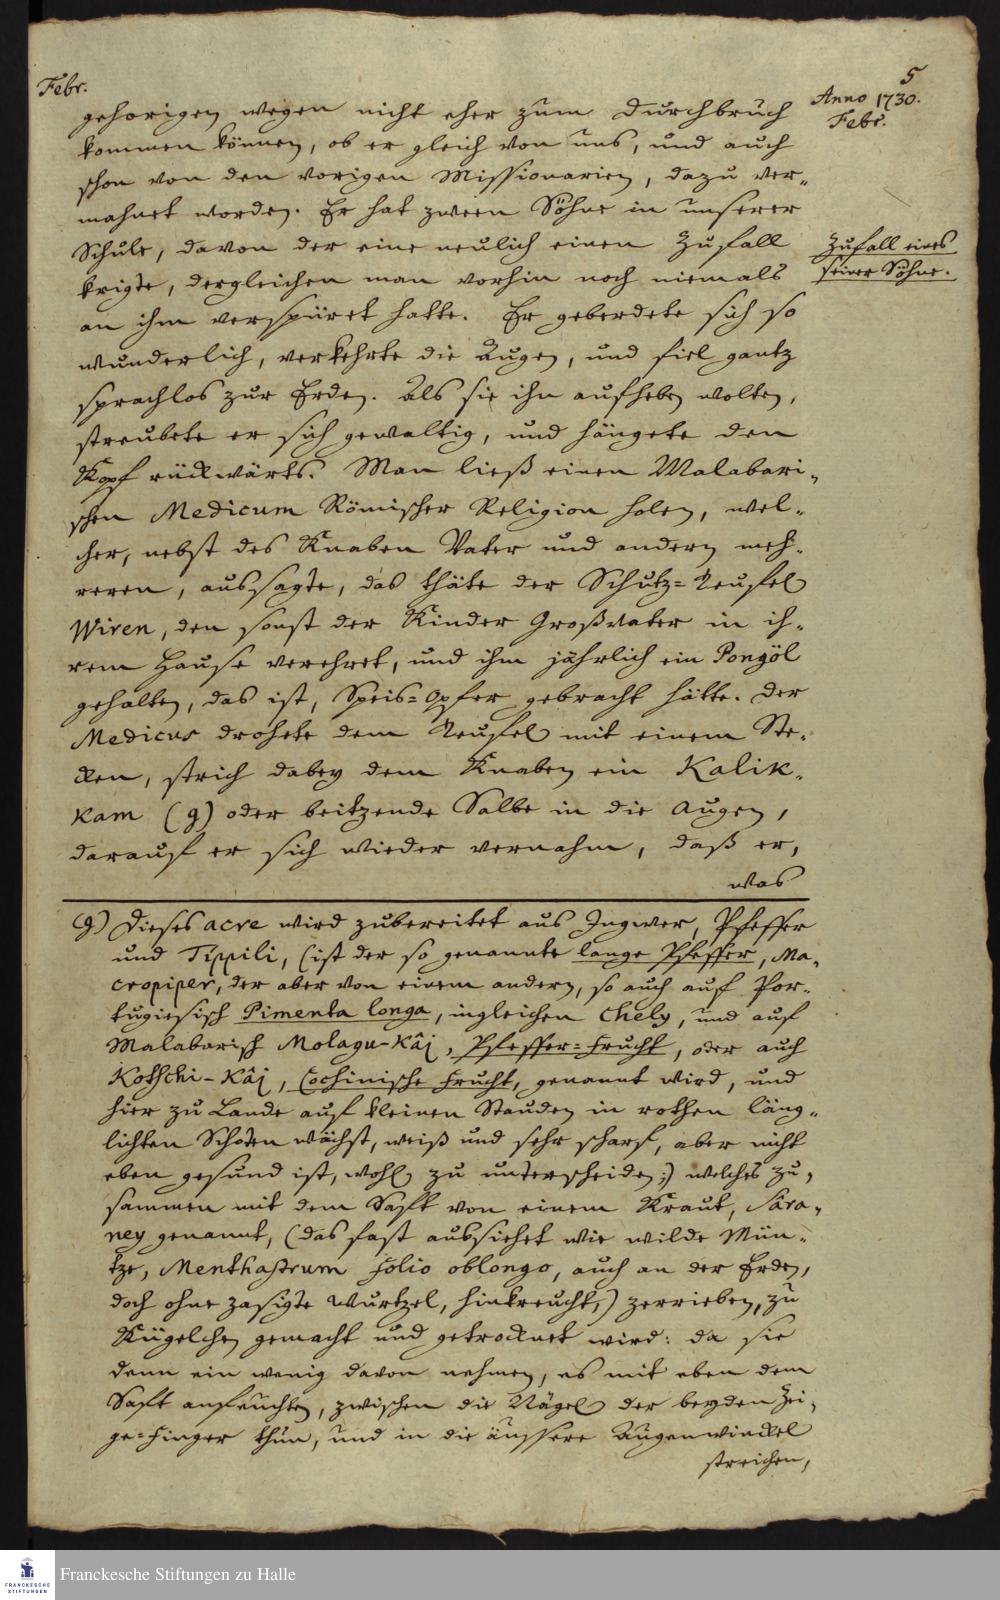 5
Febr.
Anno 1730.
Febr.
gehorigen wegen nicht eher zum Durchbruch
kommen können, ob er gleich von uns, und auch
schon von den vorigen Missionarien, dazu ver-
mahnet worden. Er hat zween Söhne in unserer
Schule, davon der eine neulich einen Zufall
Zufall eines
seiner Söhne.
krigte, dergleichen man vorhin noch niemals
an ihm verspüret hatte. Er geberdete sich so
wunderlich, verkehrte die Augen, und fiel gantz
sprachlos zur Erden. Als sie ihn aufheben wolten,
streubete er sich gewaltig, und hängete den
Kopf rückwärts. Man ließ einen Malabari-
schen Medicum Römischer Religion holen, wel-
cher, nebst des Knaben Vater und andern meh-
reren, aussagte, das thäte der Schutz-Teufel
Wiren, den sonst der Kinder Großvater in ih-
rem Hause verehret, und ihm jährlich ein Pongöl
gehalten, das ist, Speis-Opfer gebracht hätte. Der
Medicus drohete dem Teufel mit einem Ste-
cken, strich dabey dem Knaben ein Kalik-
kam (g) oder beitzende Salbe in die Augen,
darauf er sich wieder vernahm, daß er,
was
g) Dieses acre wird zubereitet aus Ingwer, Pfeffer
und Tippili, (ist der so genannte lange Pfeffer, Ma-
cropiper, der aber von einem andern, so auch auf Por-
tugiesisch Pimenta longa, ingleichen Chely, und auf
Malabarisch Molagu-Kâi, Pfeffer-Frucht, oder auch
Kotschi-Kâi, Cochinische Frucht, genannt wird, und
hier zu Lande auf kleinen Stauden in rothen läng-
lichten Schoten wächst, weiß und sehr scharf, aber nicht
eben gesund ist, wohl zu unterscheiden;) welches zu-
sammen mit dem Saft von einem Kraut, Sâra-
ney genannt, (das fast aussiehet wie wilde Mün-
tze, Menthastrum folio oblongo, auch an der Erden,
doch ohne zasigte Wurtzel, hinkreucht,) zerrieben, zu
Kügelchen gemacht und getrocknet wird: da sie
denn ein wenig davon nehmen, es mit eben dem
Saft anfeuchten, zwischen die Nägel der beyden Zei-
ge-Finger thun, und in die äussere Augenwinckel
streichen,
FRANCKESCHE
STIFTUNGEN
Franckesche Stiftungen zu Halle